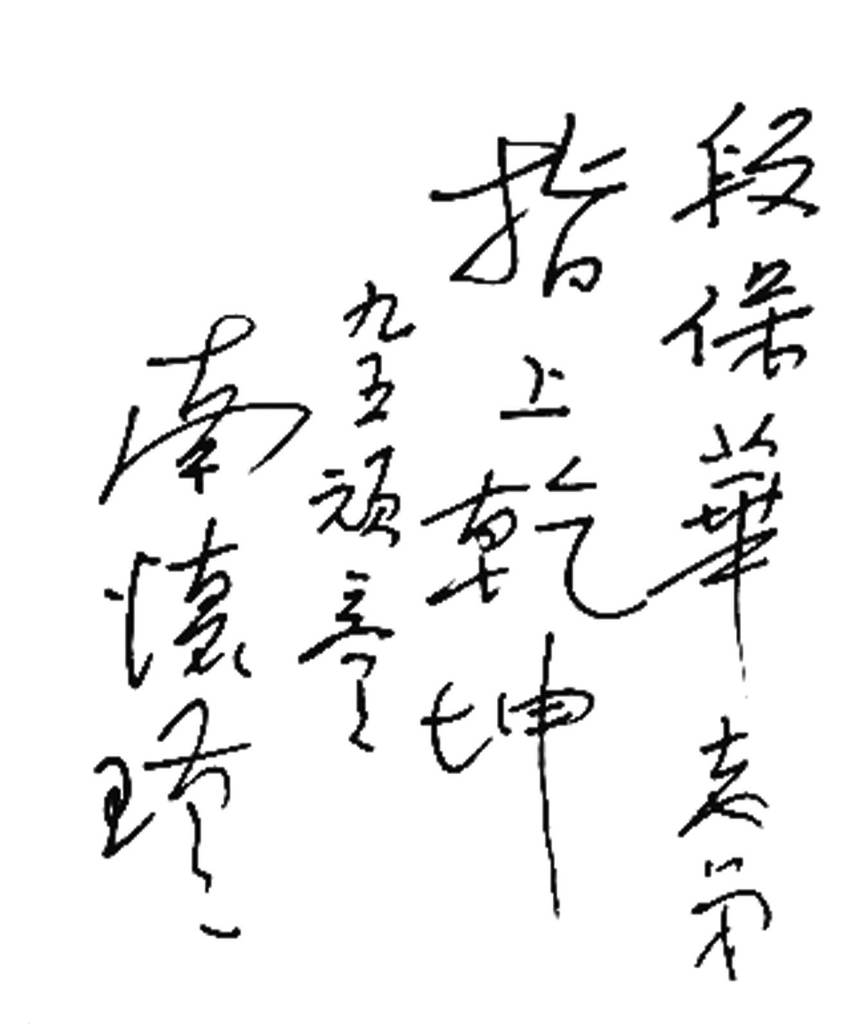 段保華老弟
指上乾坤
九五頑童
南懷瑾